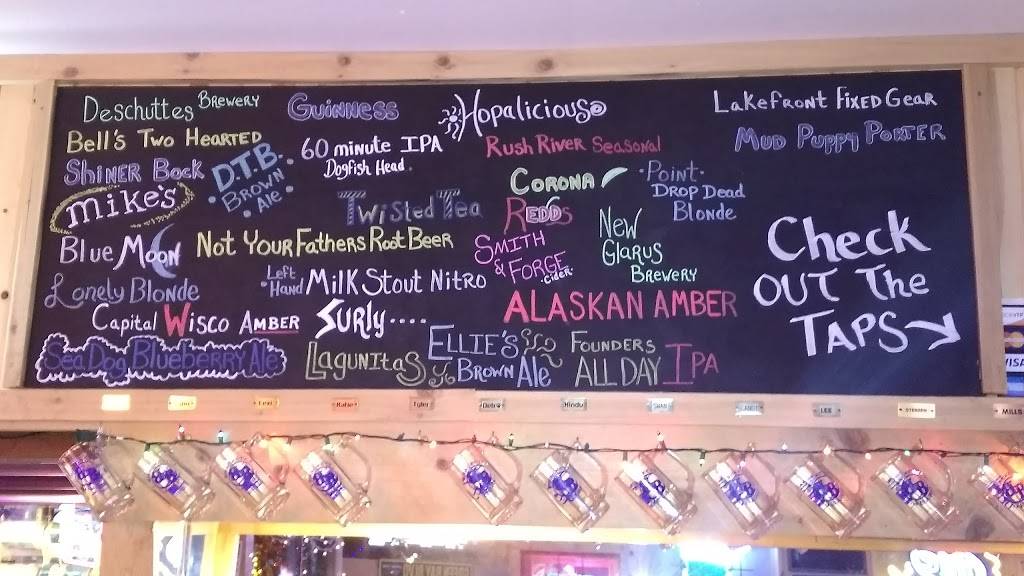 Deschutes Brewery
Guinness
Hopalicious
Lakefront Fixed Gear
Bell's Two Hearted
60 minute IPA
Dogfish Head.
Rush River Seasonal
Mud Puppy Porter
Shiner Bock
D.T.B.
Brown
Ale
Corona
Point
Drop Dead
Blonde
Mike's
Twisted Tea
Redds
New
Glarus
Brewery
Blue Moon
Not Your Fathers Root Beer
Smith
& Forge
cider
Check
OUT The
TAPS
Lonely Blonde
Left
Hand
Milk Stout Nitro
ALASKAN AMBER
Capital Wisco Amber
Surly....
Sea Dog Blueberry Ale
Lagunitas
Ellie's
Brown Ale
Founders
ALL DAY IPA
Katie
Tyler
Debra
Hindu
LEE
MILLS
VISA